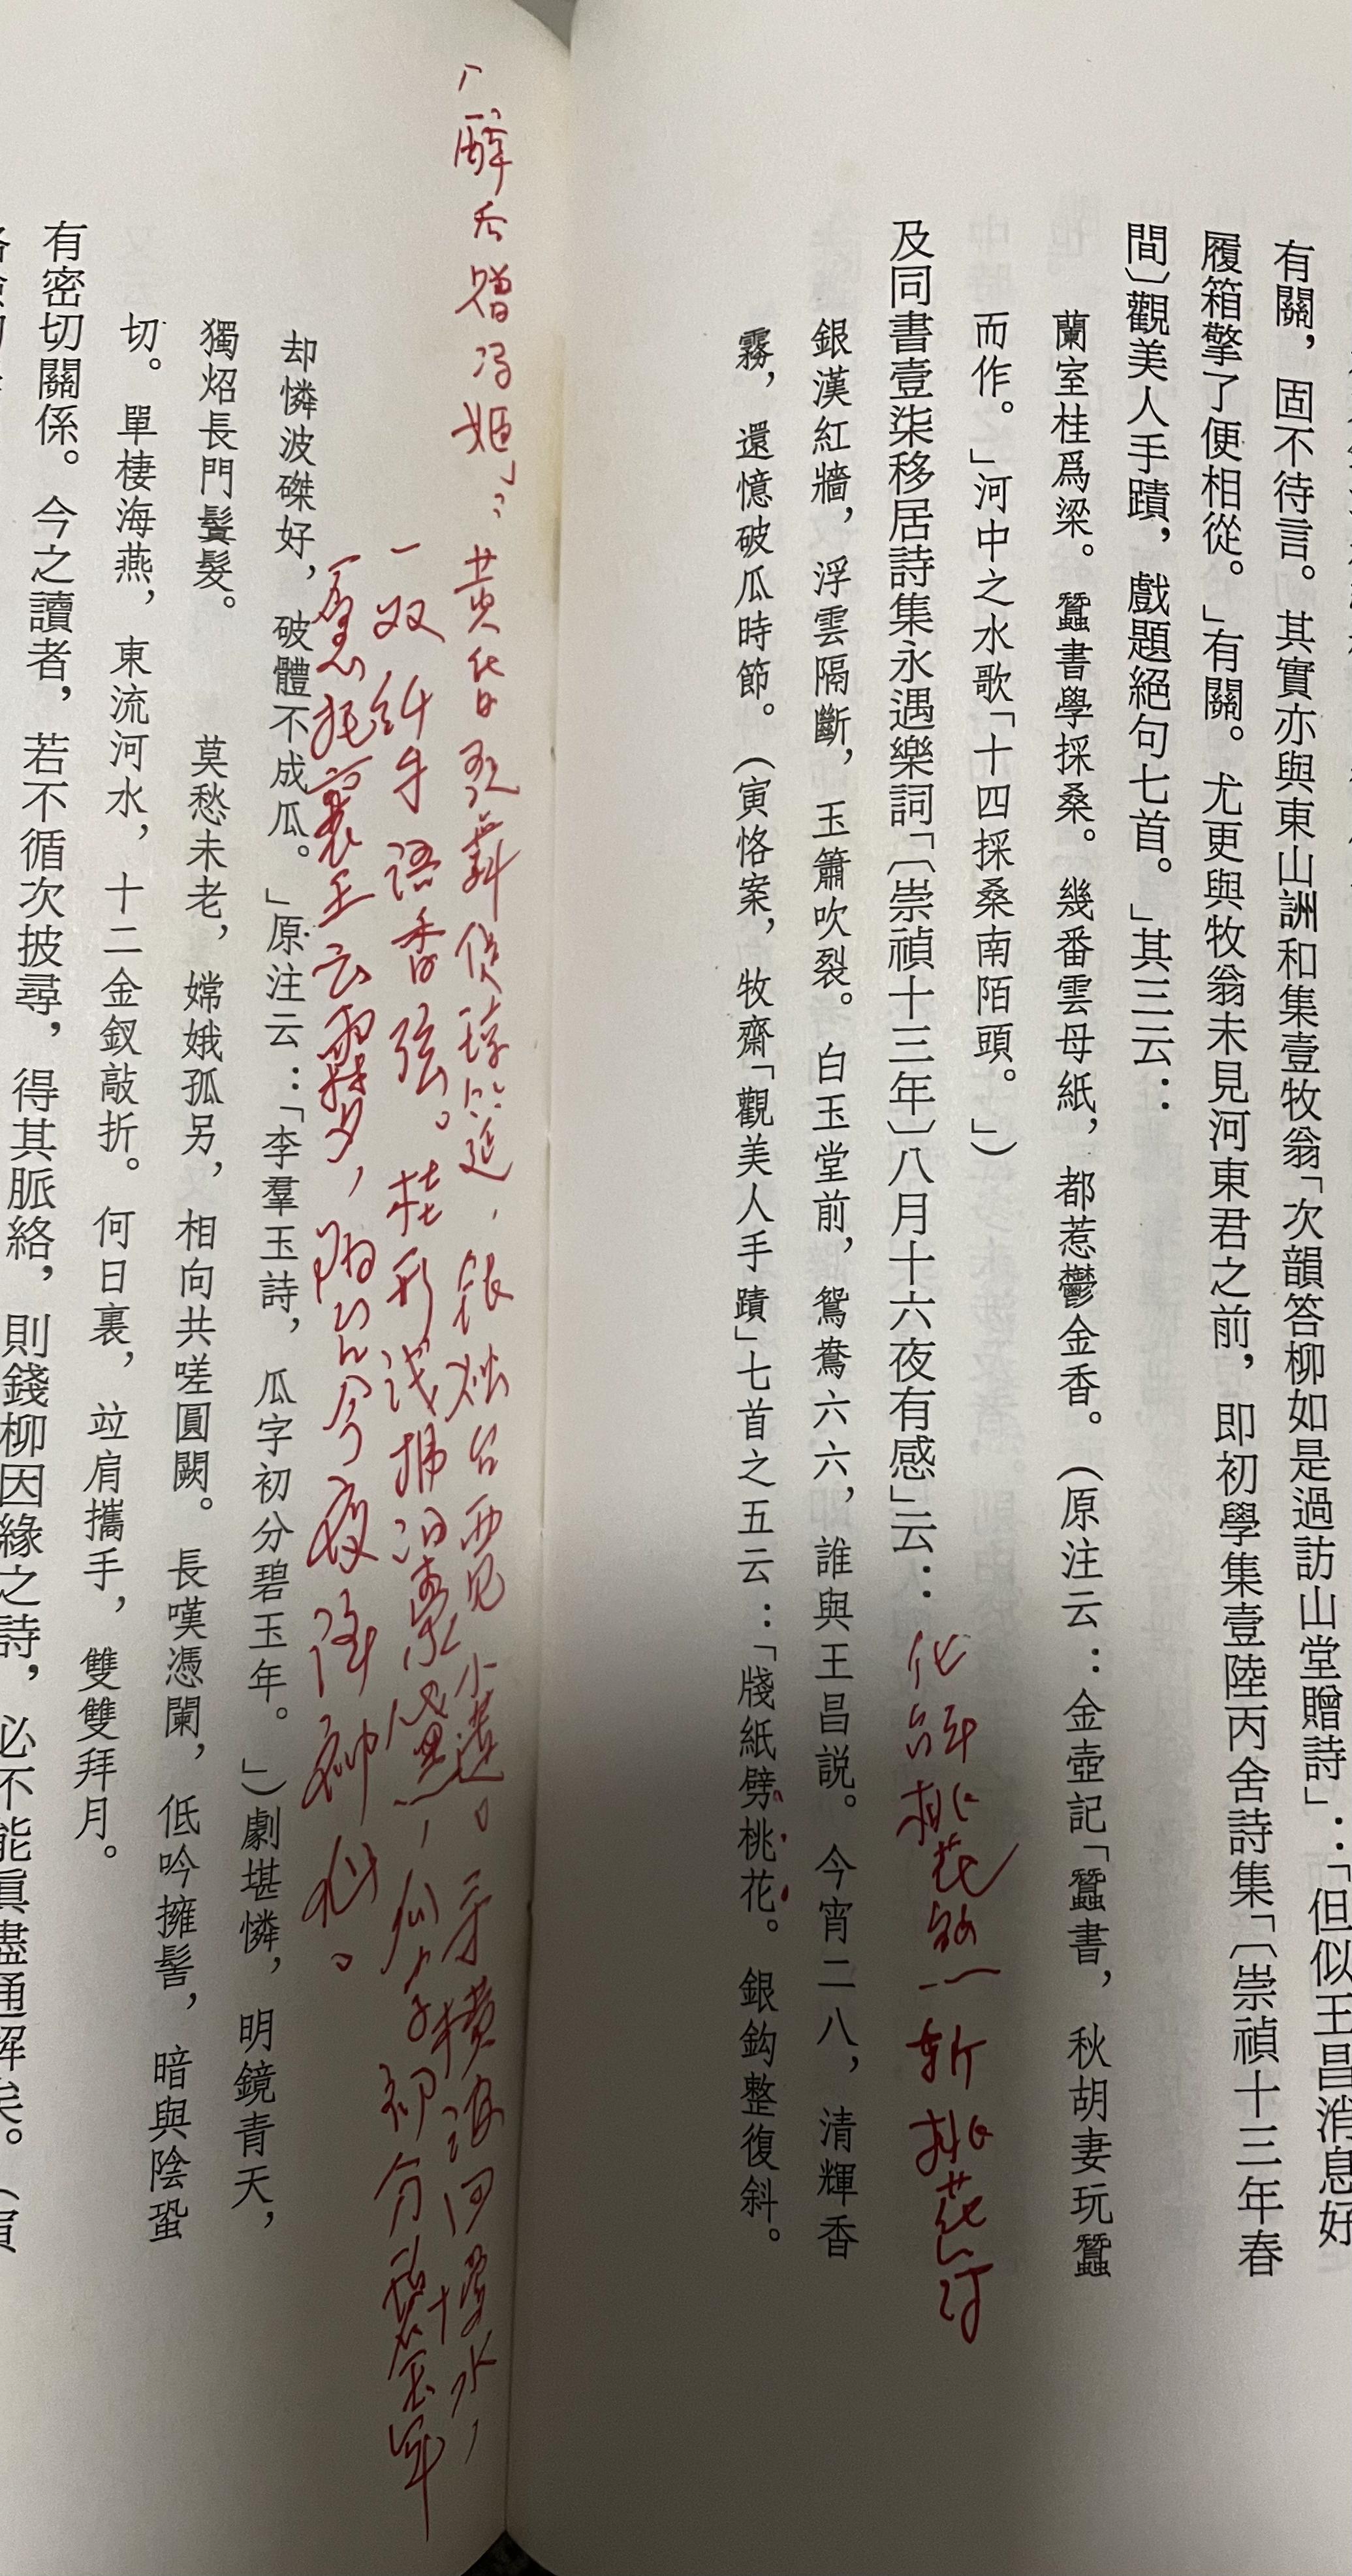 有關，固不待言。其實亦與東山詶和集壹牧翁「次韻答柳如是過訪山堂贈詩」：「但似王昌消息好
履箱擎了便相從。」有關。尤更與牧翁未見河東君之前，即初學集壹陸丙舍詩集「〔崇禎十三年春
間〕觀美人手蹟，戲題絕句七首。」其三云：
蘭室桂爲梁。蠶書學採桑。幾番雲母紙，都惹鬱金香。（原注云：金壺記「蠶書，秋胡妻玩蠶
而作。」河中之水歌「十四採桑南陌頭。」）
及同書壹柒移居詩集永遇樂詞「〔崇禎十三年〕八月十六夜有感」云：
桃花 桃花
銀漢紅牆，浮雲隔斷，玉簫吹裂。白玉堂前，鴛鴦六六，誰與王昌説。今宵二八，清輝香
霧，還憶破瓜時節。（寅恪案，牧齋「觀美人手蹟」七首之五云：「牋紙劈桃花。銀鈎整復斜。
「醉后贈冯姬」：黄昏歌舞促琼筵，银烛台西见小莲。一寸横波回慢水，
一双纤手语香弦。桂形浅拂梁家黛，瓜字初分碧玉年
愿托襄王云雨梦，阳台今夜降神仙。
却憐波磔好，破體不成瓜。」原注云：「李羣玉詩，瓜字初分碧玉年。」）劇堪憐，明鏡青天，
獨炤長門鬢髮。　莫愁未老，嫦娥孤另，相向共嗟圓闕。長嘆憑闌，低吟擁髻，暗與陰蛩
切。單棲海燕，東流河水，十二金釵敲折。何日裏，竝肩攜手，雙雙拜月。
有密切關係。今之讀者，若不循次披尋，得其脈絡，則錢柳因緣之詩，必不能真盡通解矣。（寅